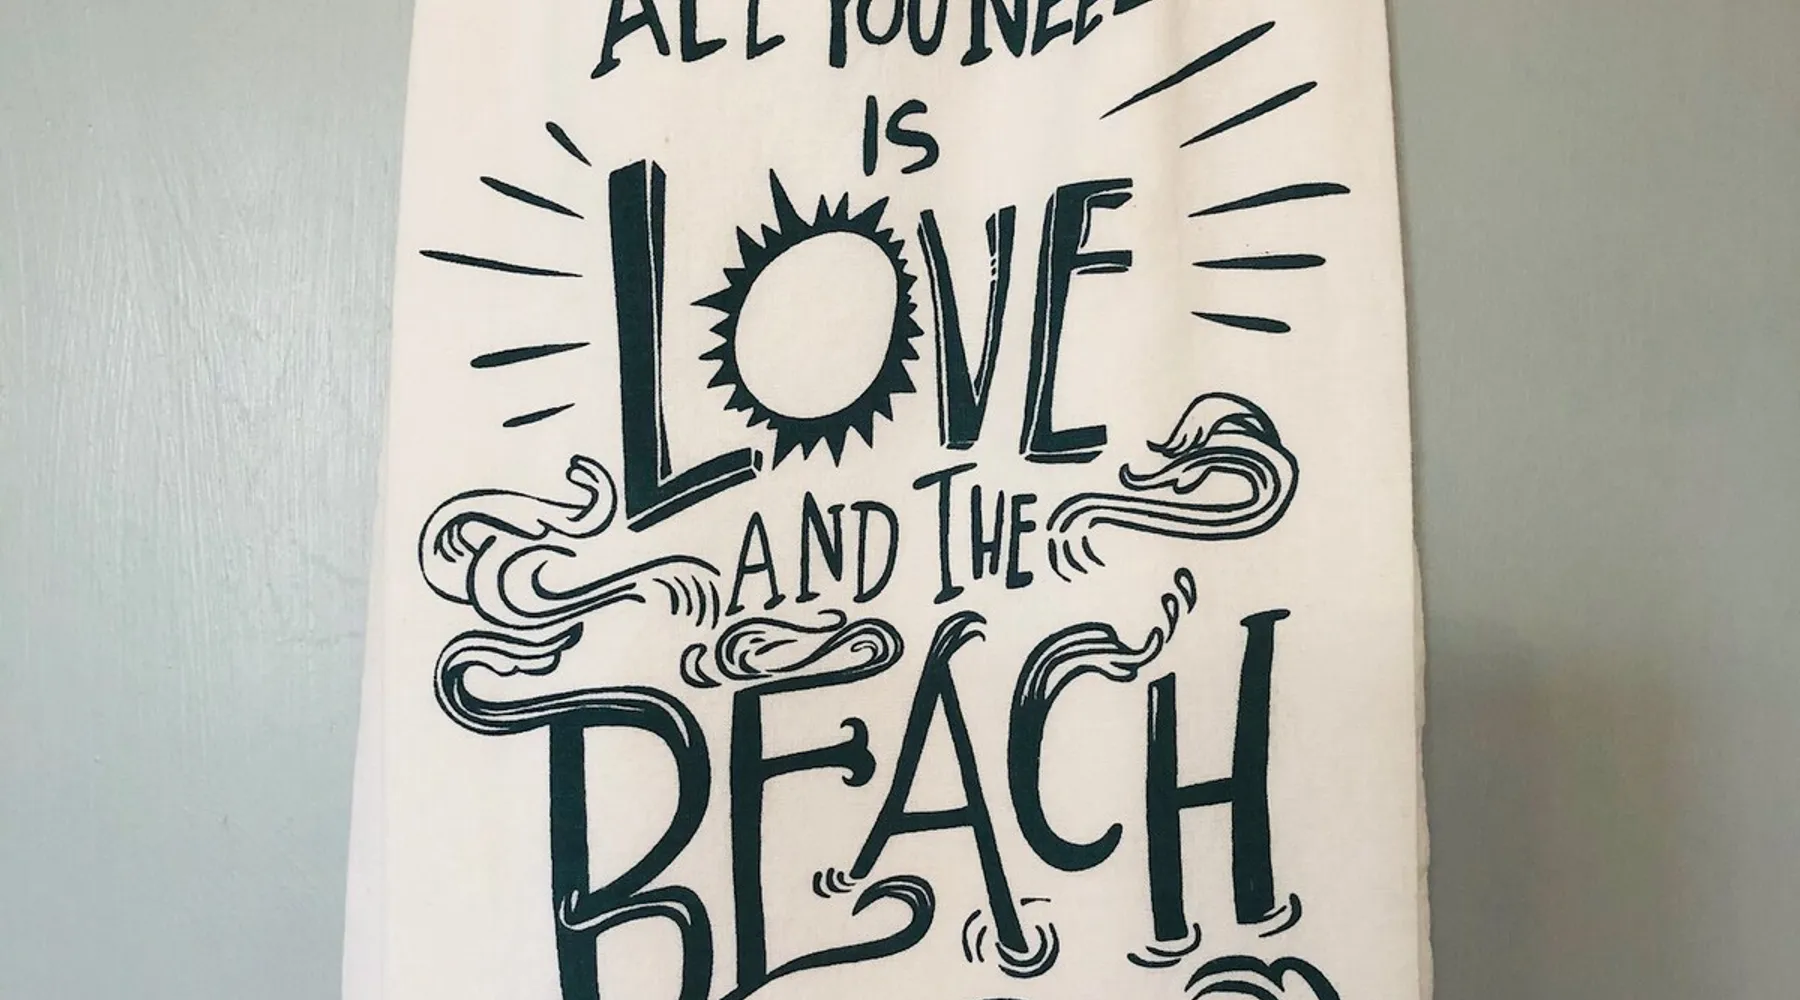 ALL YOU NEED
IS
LOVE
AND THE
BEACH